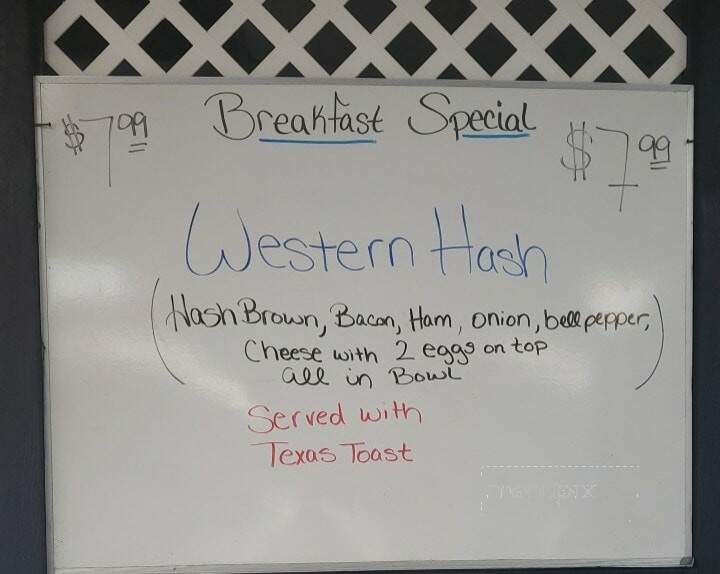 $7.99 Breakfast Special $7.99
Western Hash
(Hash Brown, Bacon, Ham, onion, bell pepper,
Cheese with 2 eggs on top
all in Bowl)
Served with
Texas Toast